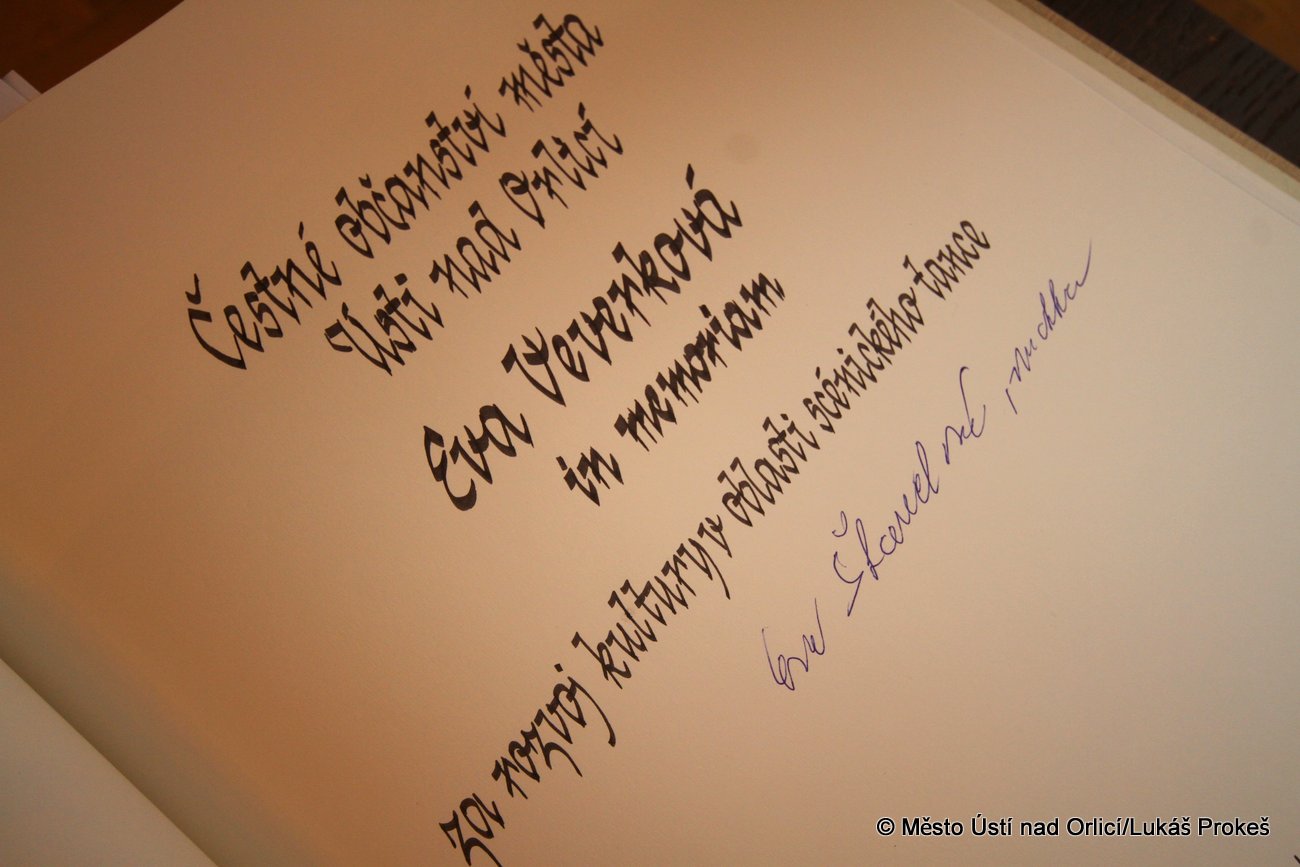 Čestné občanství města
Ústí nad Orlicí
Eva Veverková
in memoriam
za rozvoj kultury v oblasti scénického tance
Eva
© Město Ústí nad Orlicí/Lukáš Prokeš